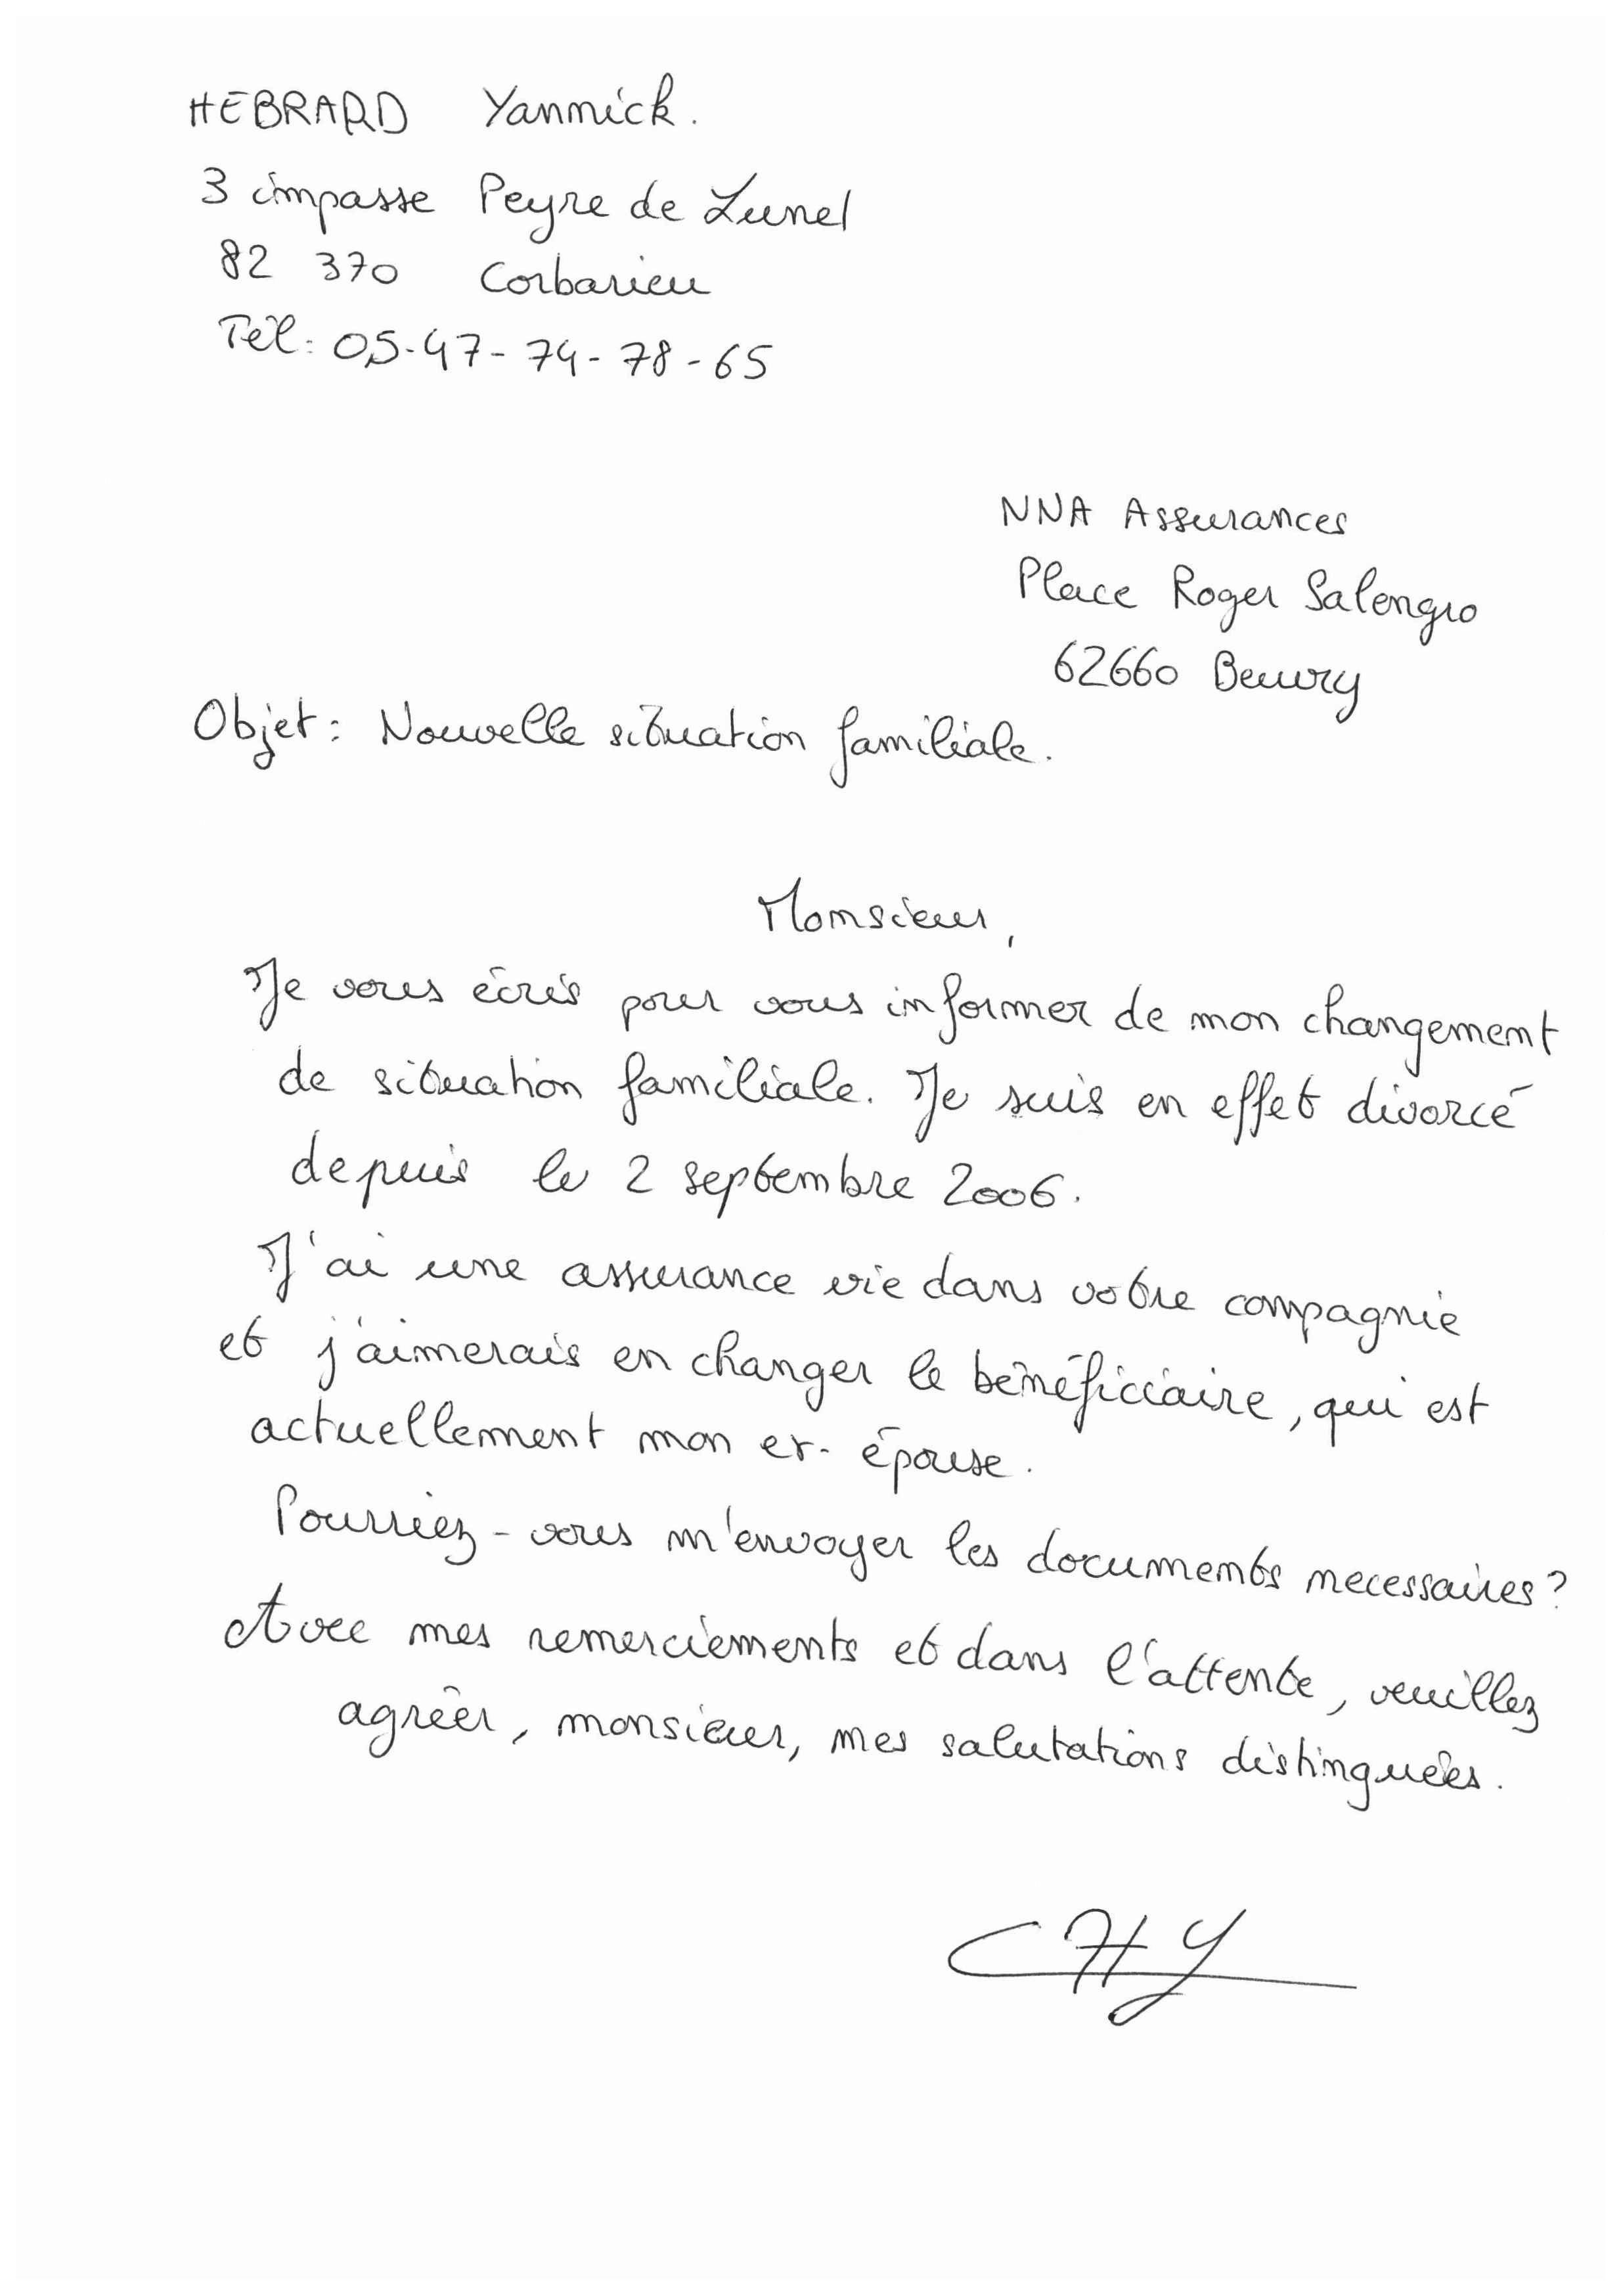 HEBRARD Yannick.
3 impasse Peyre de Lunel
82 370 Corbarieu
Tél: 05-47-74-78-65
NNA Assurances
Place Roger Salengro
62660 Beuvry
Objet: Nouvelle situation familiale.
Monsieur,
Je vous écris pour vous informer de mon changement
de situation familiale. Je suis en effet divorcé
depuis le 2 septembre 2006.
J'ai une assurance vie dans votre compagnie
et j'aimerais en changer le bénéficiaire, qui est
actuellement mon ex-épouse.
Pourriez-vous m'envoyer les documents necessaires?
Avec mes remerciements et dans l'attente, veuillez
agréer, monsieur, mes salutations distinguées.
HY